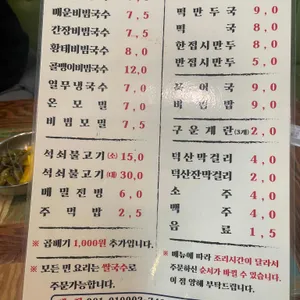 매운비빔국수 7,5
간장비빔국수 7,5
황태비빔국수 8,0
골뱅이비빔국수 12,0
열무냉국수 7,0
온모밀 7,0
비빔모밀 7,5
석쇠불고기(소) 15,0
석쇠불고기(대) 30,0
메밀전병 6,0
주먹밥 2,5
※ 곱빼기 1,000원 추가입니다.
※ 모든 면 요리는 쌀국수로
주문가능합니다.
떡만두국 9,0
떡국 8,0
한접시만두 8,0
반접시만두 5,0
북어국 9,0
비빔밥 9,0
구운계란(3개) 2,0
덕산막걸리 4,0
덕산잔막걸리 2,0
소주 4,0
맥주 4,0
음료 1,5
※ 메뉴에 따라 조리시간이 달라서
주문하신 순서가 바뀔 수 있습니다.
이 점 양해 부탁드립니다.